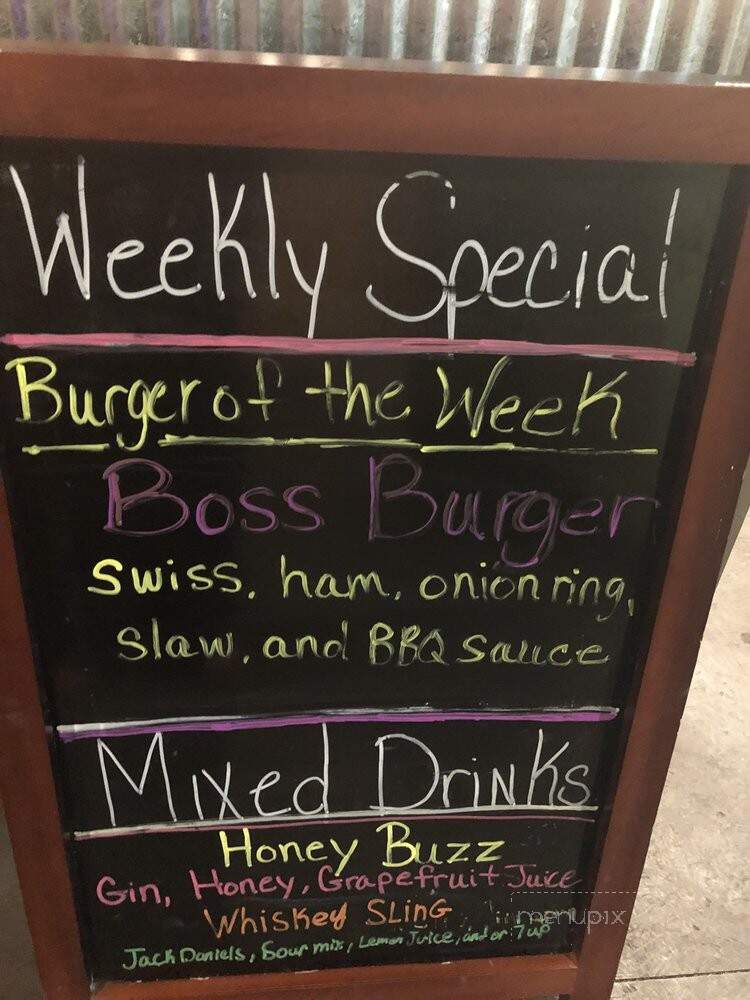 Weekly Special
Burger of the Week
Boss Burger
Swiss, ham, onion ring,
slaw, and BBQ sauce
Mixed Drinks
Honey Buzz
Gin, Honey, Grapefruit Juice
Whiskey Sling
menupix
Jack Daniels, Sour mix, Lemon Juice, and or 7up